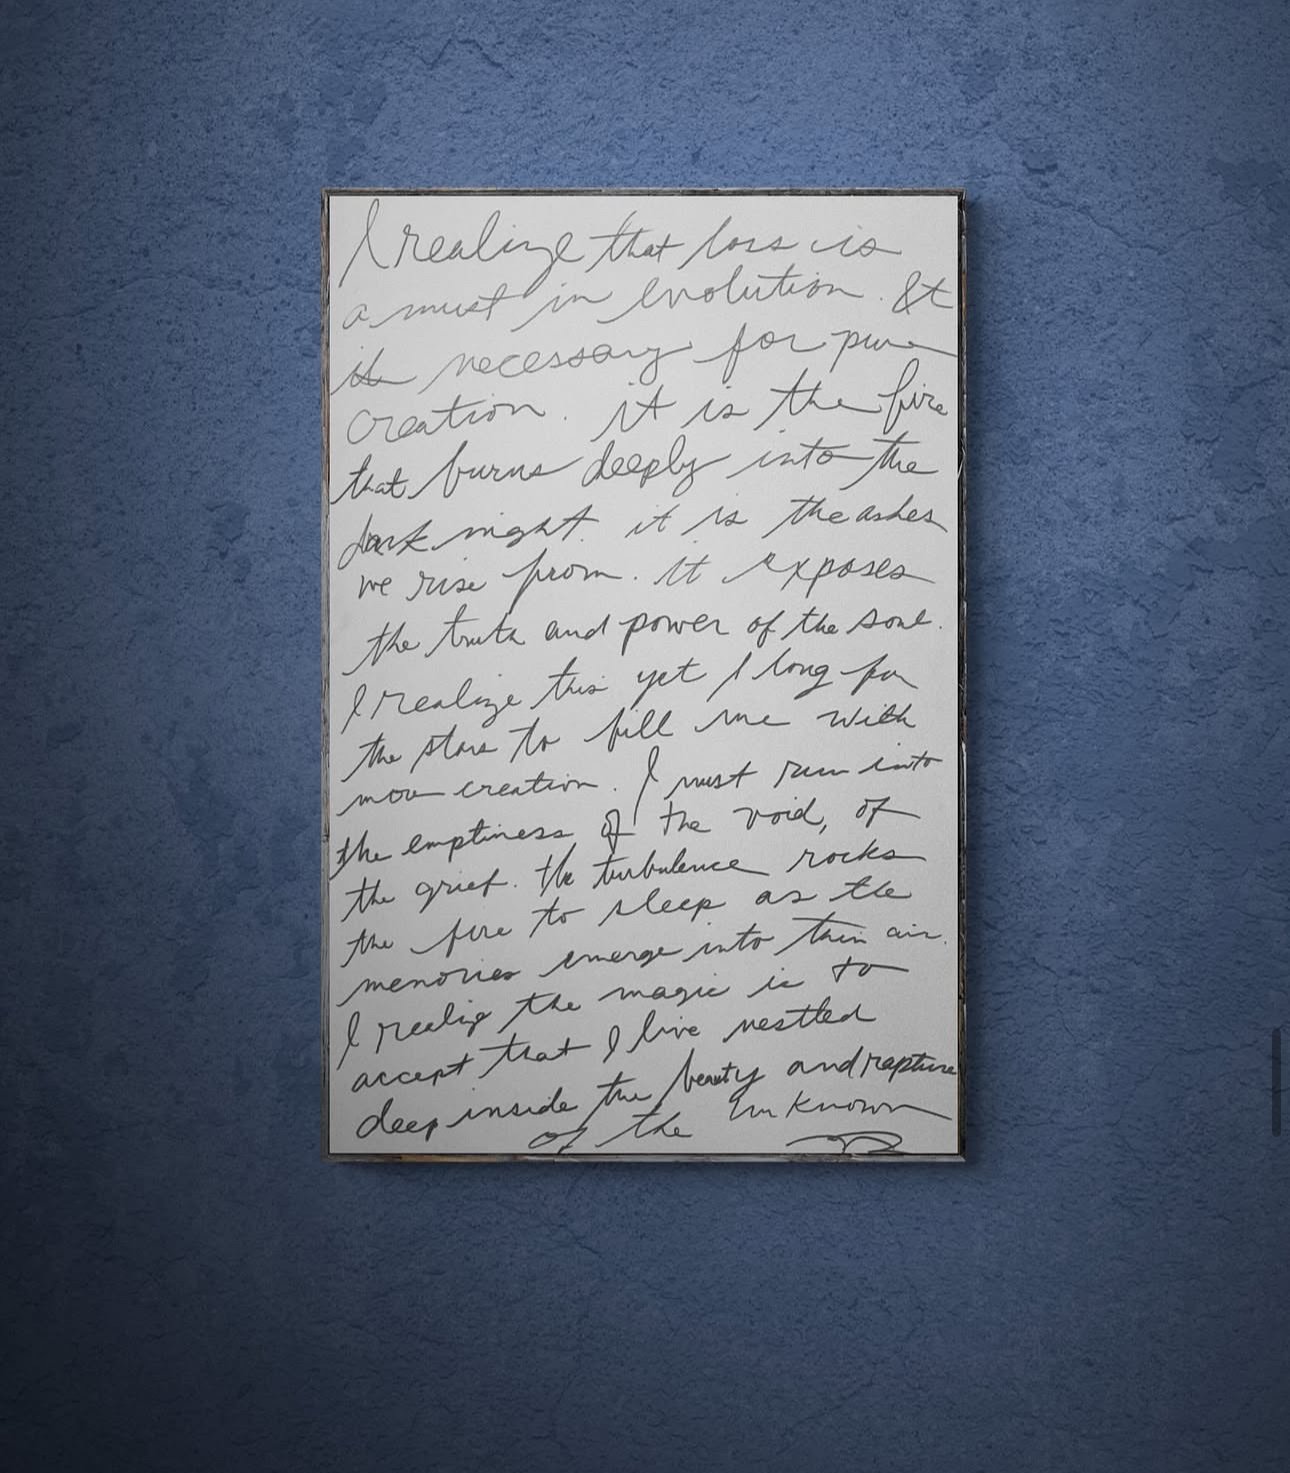 I realize that loss is
a must in evolution. It
is necessary for pure
creation. it is the fire
that burns deeply into the
dark night. it is the ashes
we rise from. It exposes
the truth and power of the soul.
I realize this yet I long for
the stars to fill me with
more creation. I must run into
the emptiness of the void, of
the grief. the turbulence rocks
the fire to sleep as the
memories emerge into thin air.
I realize the magic is to
accept that I live nestled
deep inside the beauty and rapture
of the unknown